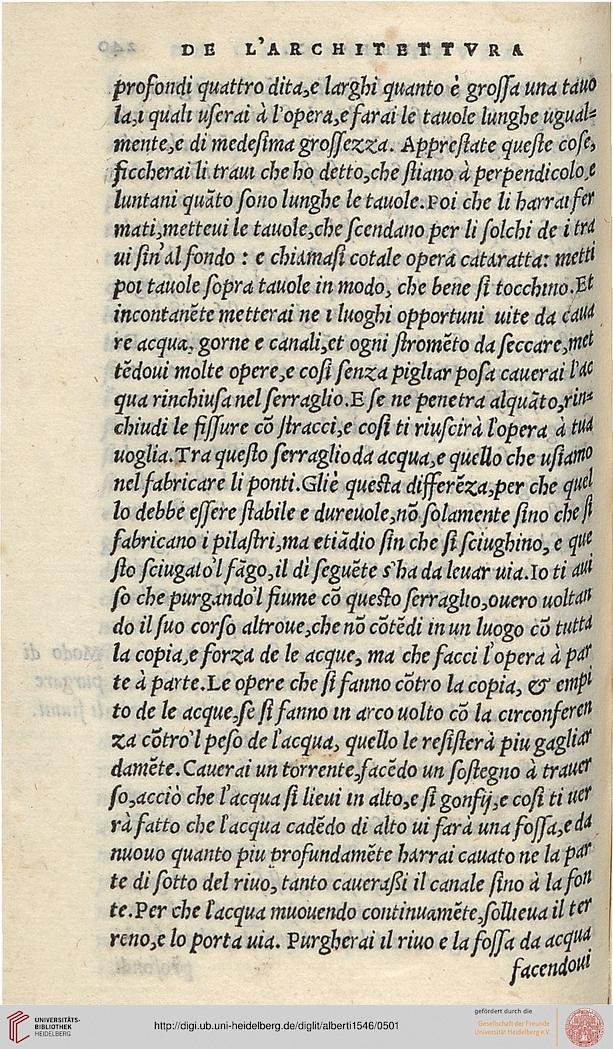 DE L'ARCHITETTVRA
profondi quattro dita,e larghi quanto è groſſa una tauo
la,i quali uſerai à l'opera,e farai le tauole lunghe ugual=
mente,e di medeſima groſſezza. Appreſtate queſte coſe,
ficcherai li traui che ho detto,che ſtiano à perpendicolo,e
luntani quāto ſono lunghe le tauole.Poi che li harrai fer
mati,metteui le tauole,che ſcendano per li ſolchi de i tra
ui ſin'al fondo : e chiamaſi cotale opera cataratta: metti
poi tauole ſopra tauole in modo, che bene ſi tocchino.Et
incontanēte metterai ne i luoghi opportuni uite da caua
re acqua, gorne e canali,et ogni ſtromēto da ſeccare,met
tēdoui molte opere,e coſi ſenza pigliar poſa cauerai l'ac
qua rinchiuſa nel ſerraglio.E ſe ne penetra alquāto,rin=
chiudi le fiſſure cō ſtracci,e coſi ti riuſcirà l'opera à tua
uoglia.Tra queſto ſerraglio da acqua,e quello che uſiamo
nel fabricare li ponti.Gliè queſta differēza,per che quel
lo debbe eſſere ſtabile e dureuole,nō ſolamente ſino che ſi
fabricano i pilaſtri,ma etiādio ſin che ſi ſciughino, e que
ſto ſciugato'l fāgo,il dì ſeguēte s'ha da leuar uia.Io ti aui
ſo che purgando'l fiume cō queſto ſerraglio,ouero uoltan
do il ſuo corſo altroue,che nō cōtēdi in un luogo cō tutta
la copia,e forza de le acque, ma che facci l'opera à par
te à parte.Le opere che ſi fanno cōtro la copia, & empi
to de le acque,ſe ſi fanno in arco uolto cō la circonferen
za cōtro'l peſo de l'acqua, quello le reſiſterà piu gagliar
damēte.Cauerai un torrente,facēdo un ſoſtegno à trauer
ſo,acciò che l'acqua ſi lieui in alto,e ſi gonfij,e coſi ti uer
rà fatto che l'acqua cadēdo di alto ui farà una foſſa,e da
nuouo quanto piu profundamēte harrai cauato ne la par
te di ſotto del riuo, tanto caueraßi il canale ſino à la fon
te.Per che l'acqua muouendo continuamēte,ſollieua il ter
reno,e lo porta uia. Purgherai il riuo e la foſſa da acqua
facendoui
UNIVERSITÄTS-
BIBLIOTHEK
HEIDELBERG
http://digi.ub.uni-heidelberg.de/diglit/alberti1546/0501
gefördert durch die
Gesellschaft der Freunde
Universität Heidelberg e.V.